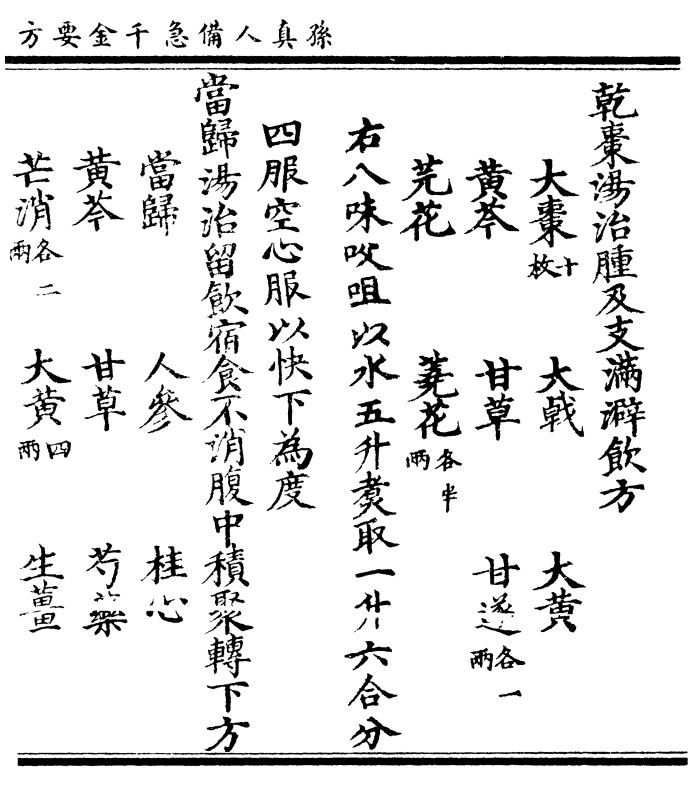 孫真人備急千金要方
乾棗湯治腫及支滿澼飲方
大棗十枚 大戟 大黃
黃芩 甘草 甘遂各一兩
芫花 蕘花各半兩
右八味㕮咀以水五升煑取一升六合分
四服空心服以快下為度
當歸湯治留飲宿食不消腹中積聚轉下方
當歸 人參 桂心
黃芩 甘草 芍藥
芒消各二兩 大黃四兩 生薑